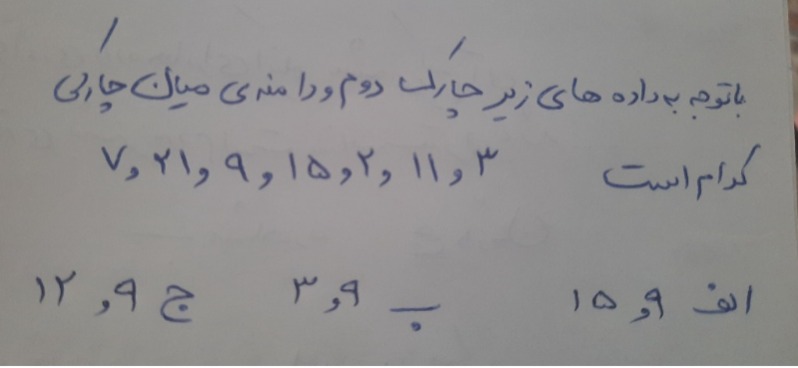 با توجه به داده های زیر چارک دوم و دامنه ی میان چارکی
کدام است ۳ و ۱۱ و ۲ و ۱۵ و ۹ و ۲۱ و ۷
الف ۹ و ۱۵ ب ۹ و ۳ ج ۹ و ۱۲